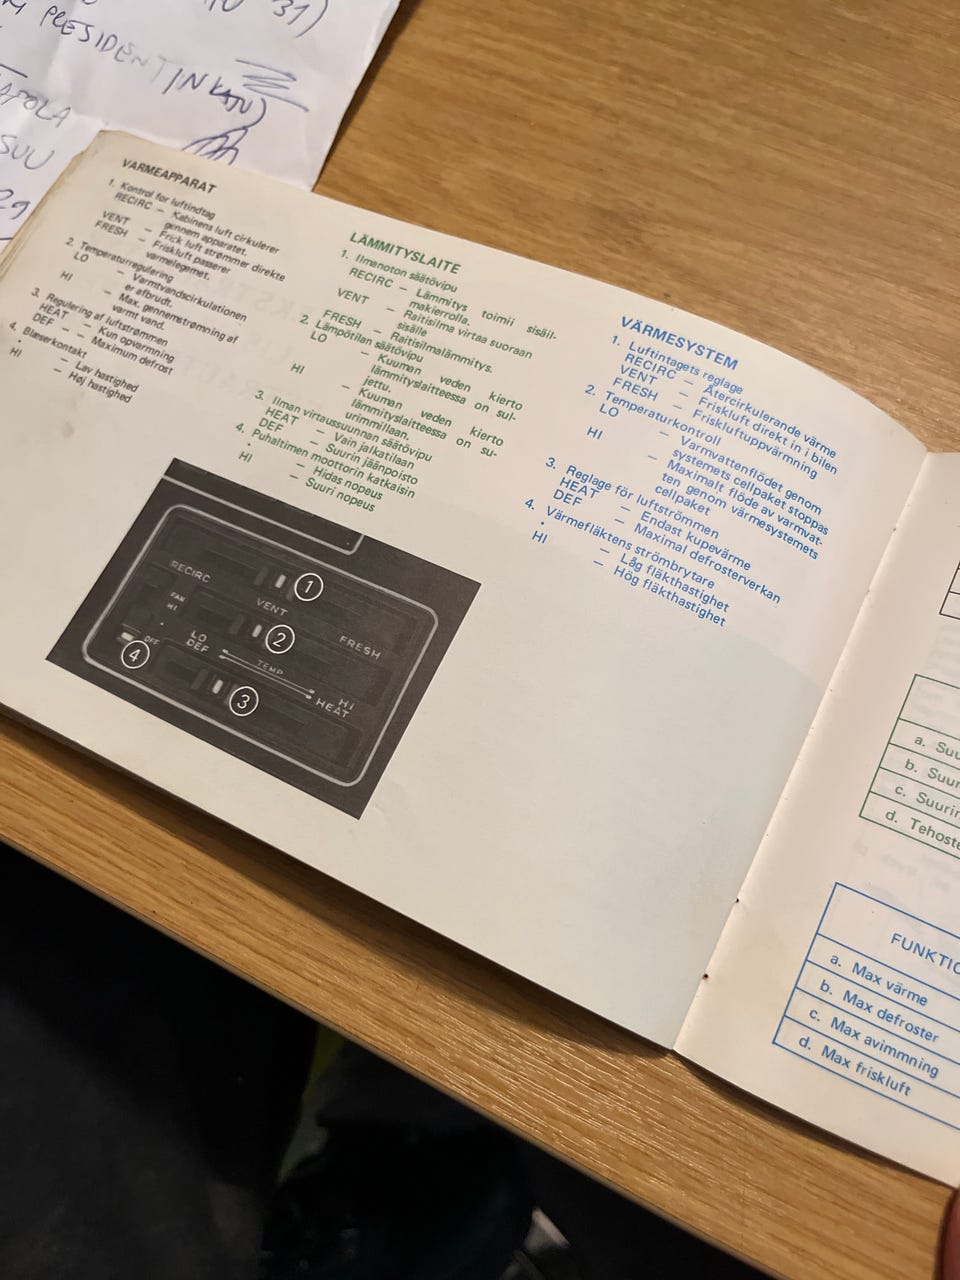 31)
PRESIDENTIN
SUU
29
VARMEAPPARAT
1. Kontrol for luftindtag
RECIRC – Kabinens luft cirkulerer
gennem apparatet.
VENT – Frick luft strømmer direkte
FRESH – Friskluft passerer
varmelegemet.
2. Temperaturregulering
LO – Varmtvandscirkulationen
er afbrudt.
HI – Max. gennemstrømning af
varmt vand.
3. Regulering af luftstrømmen
HEAT – Kun opvarmning
DEF – Maximum defrost
4. Blæserkontakt
• – Lav hastighed
HI – Høj hastighed
LÄMMITYSLAITE
1. Ilmanoton säätövipu
RECIRC – Lämmitys toimii sisäil-
makierrolla.
VENT – Raitisilma virtaa suoraan
sisälle
FRESH – Raitisilmalämmitys.
2. Lämpötilan säätövipu
LO – Kuuman veden kierto
lämmityslaitteessa on sul-
jettu.
HI – Kuuman veden kierto
lämmityslaitteessa on su-
urimmillaan.
3. Ilman virtaussuunnan säätövipu
HEAT – Vain jalkatilaan
DEF – Suurin jäänpoisto
4. Puhaltimen moottorin katkaisin
• – Hidas nopeus
HI – Suuri nopeus
VÄRMESYSTEM
1. Luftintagets reglage
RECIRC – Återcirkulerande värme
VENT – Friskluft direkt in i bilen
FRESH – Friskluftuppvärmning
2. Temperaturkontroll
LO – Varmvattenflödet genom
systemets cellpaket stoppas
HI – Maximalt flöde av varmvat-
ten genom värmesystemets
cellpaket
3. Reglage för luftströmmen
HEAT – Endast kupevärme
DEF – Maximal defrosterverkan
4. Värmefläktens strömbrytare
• – Låg fläkthastighet
HI – Hög fläkthastighet
RECIRC
1
VENT
FRESH
FAN
HI
•
OFF
4
2
LO
DEF
TEMP
HI
HEAT
3
a. Suu
b. Suur
c. Suurin
d. Tehoste
FUNKTIO
a. Max värme
b. Max defroster
c. Max avimmning
d. Max friskluft